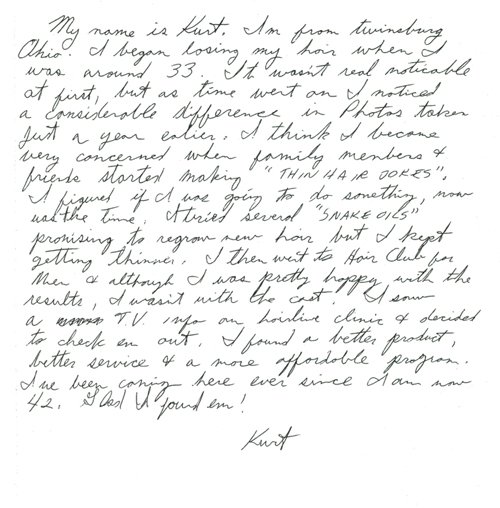 My name is Kurt. I'm from twinsburg
Ohio. I began losing my hair when I
was around 33. It wasn't real noticable
at first, but as time went on I noticed
a considerable difference in Photos taken
just a year ealier. I think I became
very concerned when family members &
friends started making "THIN HAIR JOKES".
I figured if I was going to do something, now
was the time. I tried several "SNAKE OILS"
promising to regrow new hair but I kept
getting thinner. I then went to Hair Club for
Men & although I was pretty happy with the
results, I wasn't with the cost. I saw
a T.V. info on hairline clinic & decided
to check em out. I found a better product,
better service & a more affordable program.
I've been coming here ever since I am now
42. Glad I found em!
Kurt